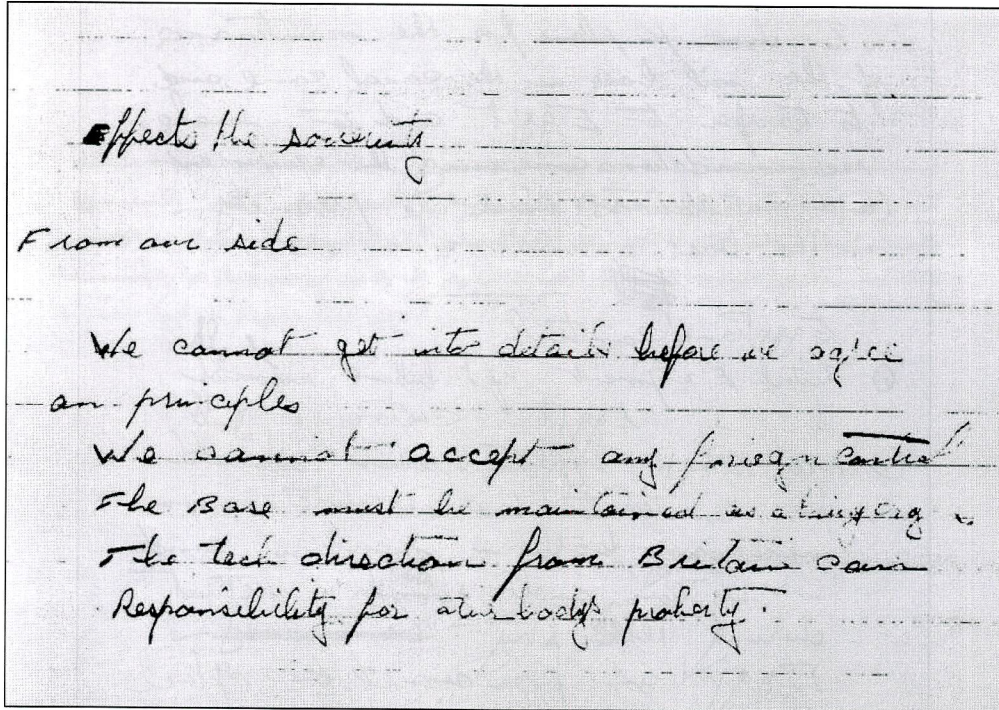 Effects the soverinty
From our side
We cannot get into details before we agree
on principles
We cannot accept any foriegn control
The Base must be maintained as a living org
The tech direction from Britain can
Responsibility for body's proherty.